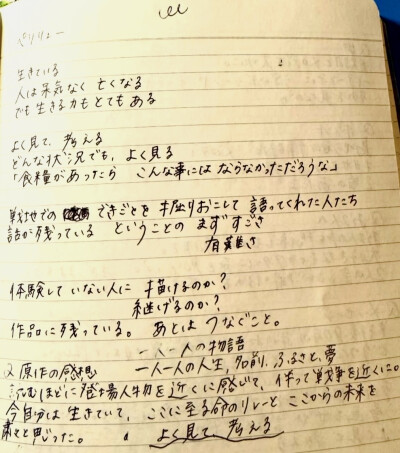 ペリリュー
生きている
人は呆気なく 亡くなる
でも 生きる力もとてもある
よく見て、考える
どんな状況でも、よく見る
「食糧があったら こんな事にはならなかっただろうな」
戦地での できごとを 掘りおこして 語ってくれた人たち
話が残っている ということの まず すごさ
有難さ
体験していない人に 描けるのか?
継げるのか?
作品に残っている。 あとは つなぐこと。
一人一人の物語
又 原作の感想 一人一人の人生、名前、ふるさと、夢
読むほどに登場人物を近くに感じて、伴って戦争を近くに。
今自分は生きていて、ここに至る命のリレーと ここからの未来を
粛々と思った。
よく見て、考える